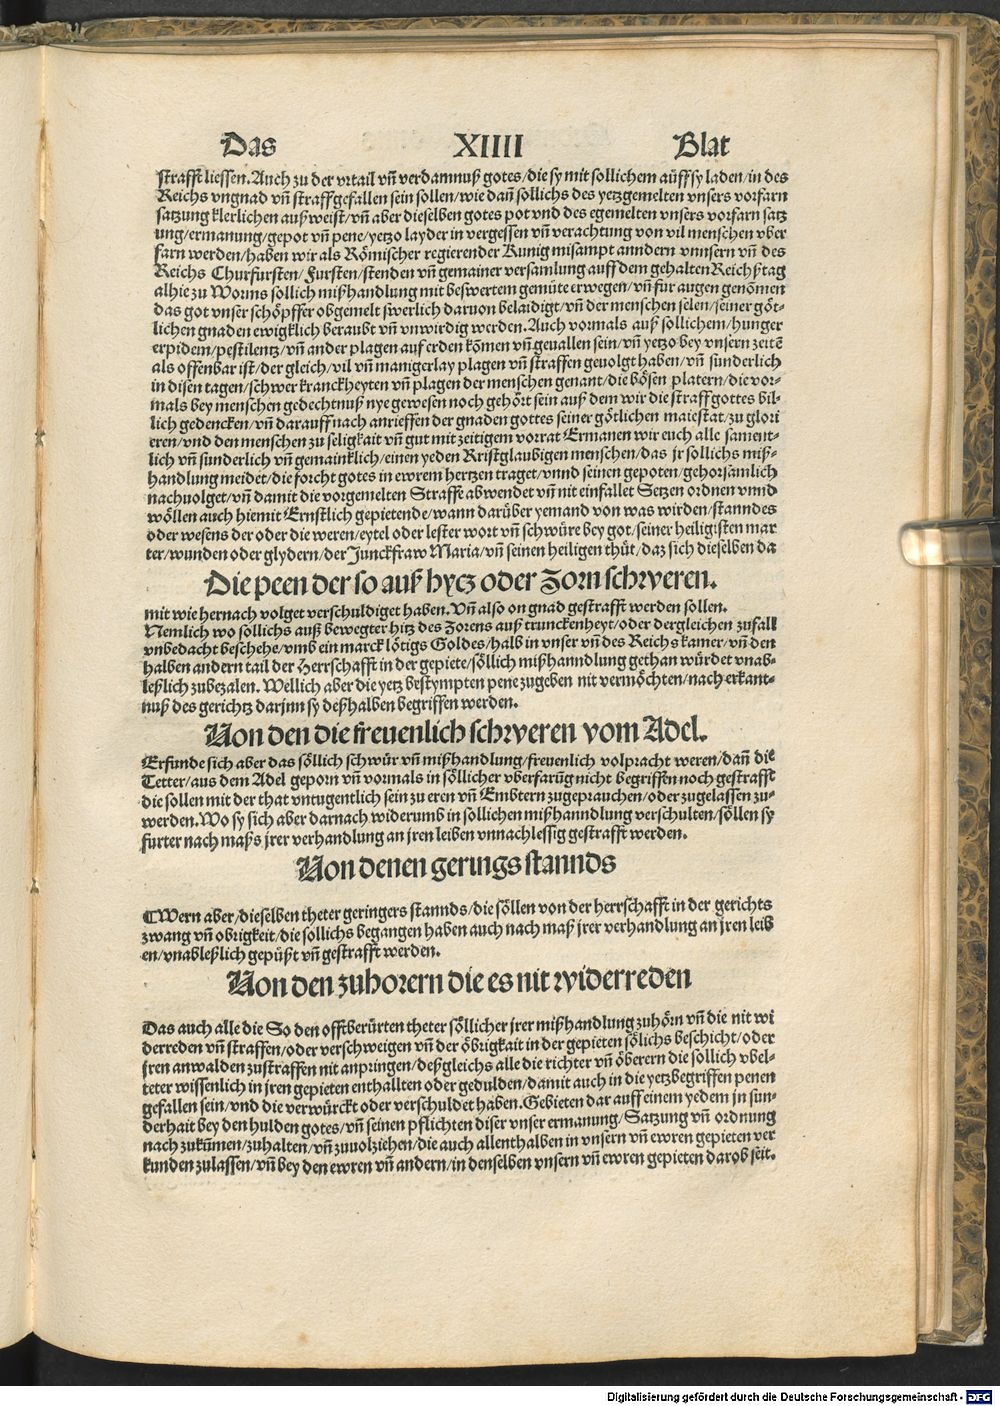 Das XIIII Blat
strafft liessen. Auch zu der vrtail vñ verdamnuß gotes/die sy mit sollichem aüff sy laden/in des
Reichs vngnad vñ straff gefallen sein sollen/wie dañ sollichs des yetzgemelten vnsers vorfarn
satzung klerlichen außweist/vñ aber dieselben gotes pot vnd des egemelten vnsers vorfarn satz
ung/ermanung/gepot vñ pene/yetzo layder in vergessen vñ verachtung von vil menschen vber
farn werden/haben wir als Römischer regierender Kunig misampt anndern vnnsern vñ des
Reichs Churfursten/Fursten/stenden vñ gemainer versamlung auff dem gehalten Reichßtag
alhie zu Worms sollich mißhandlung mit beswertem gemüte erwegen/vñ für augen genomen
das got vnser schöpffer obgemelt swerlich daruon belaidigt/vñ der menschen selen/seiner göt-
lichen gnaden ewigklich beraubt vñ vnwirdig werden. Auch vormals auß sollichem/hunger
erpidem/pestilentz/vñ ander plagen auf erden kömen vñ geuallen sein/vñ yetzo bey vnsern zeitē
als offenbar ist/der gleich/vil vñ manigerlay plagen vñ straffen geuolgt haben/vñ sünderlich
in disen tagen/schwer kranckheyten vñ plagen der menschen genant/die bösen platern/die vor-
mals bey menschen gedechtnuß nye gewesen noch gehört sein auß dem wir die straff gottes bil-
lich gedencken/vñ darauff nach anrieffen der gnaden gottes seiner götlichen maiestat/zu glori
eren/vnd den menschen zu seligkait vñ gut mit zeitigem vorrat Ermanen wir euch alle sament-
lich vñ sunderlich vñ gemainklich/einen yeden Kristglaubigen menschen/das jr sollichs miß-
handlung meidet/die forcht gotes in ewrem hertzen traget/vnnd seinen gepoten/gehorsamlich
nachuolget/vñ damit die vorgemelten Straffe abwendet vñ nit einfallet Setzen ordnen vnnd
wöllen auch hiemit Ernstlich gepietende/wann darüber yemand von was wirden/stanndes
oder wesens der oder die weren/eytel oder lester wort vñ schwüre bey got/seiner heiligisten mar
ter/wunden oder glydern/der Junckfraw Maria/vñ seinen heiligen thüt/daz sich dieselben da
Die peen der so auß hytz oder Zorn schweren.
mit wie hernach volget verschuldiget haben. Vñ also on gnad gestrafft werden sollen.
Nemlich wo sollichs auß bewegter hitz des Zorens auß trunckenheyt/oder dergleichen zufall
vnbedacht beschehe/vmb ein marck lötigs Goldes/halb in vnser vñ des Reichs kamer/vñ den
halben andern tail der Herrschafft in der gepiete/söllich mißhanndlung gethan würdet vnab-
leßlich zubezalen. Wellich aber die yetz bestympten pene zugeben nit vermöchten/nach erkant-
nuß des gerichtz darjnn sy deßhalben begriffen werden.
Von den die freuenlich schweren vom Adel.
Erfunde sich aber das söllich schwür vñ mißhandlung/freuenlich volpracht weren/dañ die
Tetter/aus dem Adel geporn vñ vormals in söllicher vberfarūg nicht begriffen noch gestrafft
die sollen mit der that vntugentlich sein zu eren vñ Embtern zugeprauchen/oder zugelassen zu-
werden. Wo sy sich aber darnach widerumb in sollichen mißhanndlung verschulten/söllen sy
furter nach maßs jrer verhandlung an jren leiben vnnachlessig gestrafft werden.
Von denen gerings stannds
¶Wern aber/dieselben theter geringers stannds/die söllen von der herrschafft in der gerichts
zwang vñ obrigkeit/die sollichs begangen haben auch nach maß jrer verhandlung an jren leib
en/vnableßlich gepüßt vñ gestrafft werden.
Von den zuhorern die es nit widerreden
Das auch alle die So den offtberürten theter söllicher jrer mißhandlung zuhörn vñ die nit wi
derreden vñ straffen/oder verschweigen vñ der öbrigkait in der gepieten sölichs beschicht/oder
jren anwalden zustraffen nit anpringen/deßgleichs alle die richter vñ öberern die sollich vbel-
teter wissenlich in jren gepieten enthallten oder gedulden/damit auch in die yetzbegriffen penen
gefallen sein/vnd die verwürckt oder verschuldet haben. Gebieten dar auff einem yedem jn sun-
derhait bey den hulden gotes/vñ seinen pflichten diser vnser ermanung/Satzung vñ ordnung
nach zukūmen/zuhalten/vñ zuuolziehen/die auch allenthalben in vnsern vñ ewren gepieten ver
kunden zulassen/vñ bey den ewren vñ andern/in denselben vnsern vñ ewren gepieten darob seit.
Digitalisierung gefördert durch die Deutsche Forschungsgemeinschaft - DFG